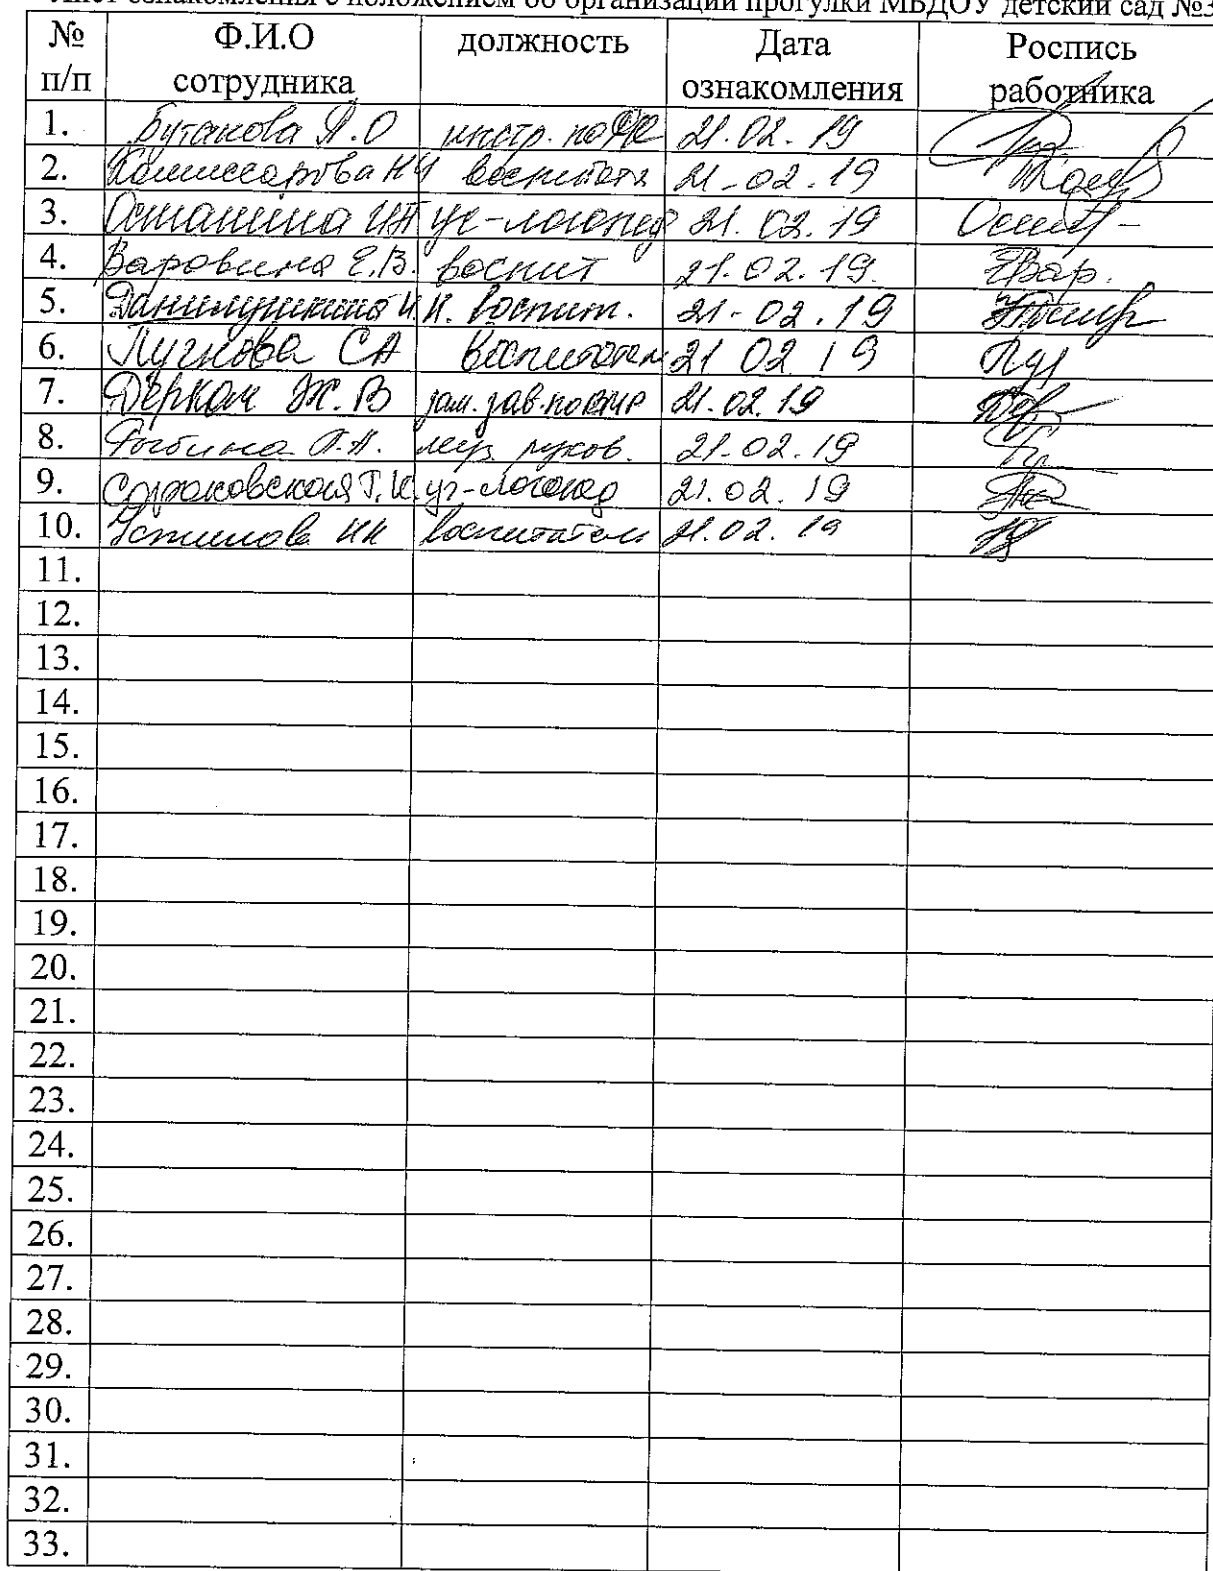 Лист ознакомления с положением об организации прогулки МБДОУ детский сад №3
№ п/п Ф.И.О сотрудника должность Дата ознакомления Роспись работника
1. Бутакова Я.О инстр. по ФК 21.02.19
2. Комиссарова НЧ воспитат 21-02.19
3. Осташина уч-логопед 21.02.19
4. Варовина Е.В. воспит 21.02.19. Вар.
5. Данилушкина И.И. воспит. 21-02.19
6. СА воспитатель 21 02 19
7. Деркач Ж.В зам.зав. по 21.02.19
8. муз. руков. 21.02.19
9. Сораковская Т.И. уч-логопед 21.02.19
10. Устинова НН воспитатель 21.02.19
11.
12.
13.
14.
15.
16.
17.
18.
19.
20.
21.
22.
23.
24.
25.
26.
27.
28.
29.
30.
31.
32.
33.